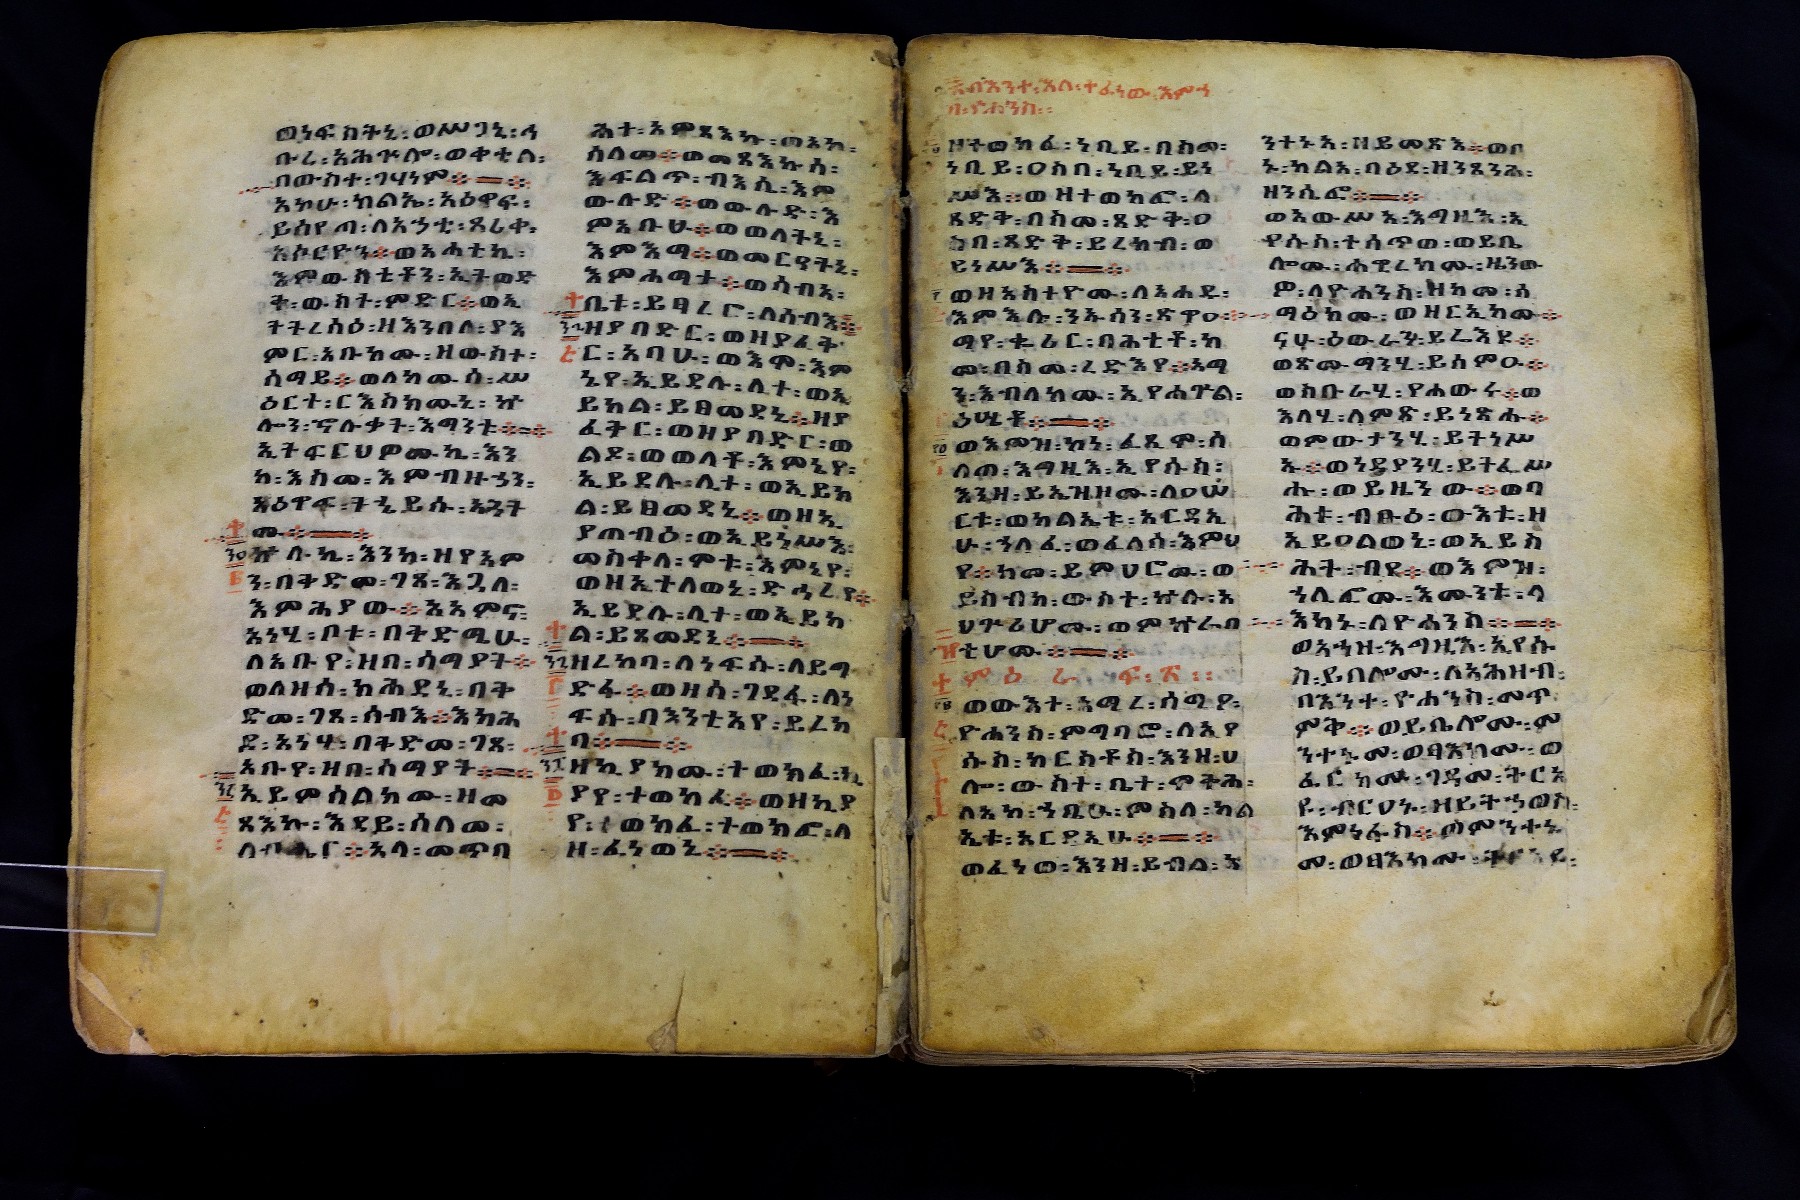 ወነፍስትኒ፡ወሥጋኒ፡ኃ
ቡረ፡አሕጕሎ፡ወቀቲለ፡
በውስተ፡ገሃነም።
አኮሁ፡ክልኤ፡አዕዋፍ፡
ይሰየጣ፡ለአኃቲ፡ጸሪቀ፡
አሶርዮን።ወአሐቲኒ፡
እምውስቴቶን፡ኢትወድ
ቅ፡ውስተ፡ምድር።ወኢ
ትትረሰዕ፡ዘእንበለ፡ያእ
ምር፡አቡክሙ፡ዘውስተ፡
ሰማይ።ወለክሙሰ፡ሥ
ዕርተ፡ርእስክሙኒ፡ኵ
ሎን፡ኍሉቃት፡እማንቱ።
ኢትፍርህዎሙኬ፡እን
ከ፡እስመ፡እምብዙኃን፡
አዕዋፍ፡ትኄይሱ፡አንት
ሙ።
ኵሉኬ፡እንከ፡ዘየአም
ን፡በቅድመ፡ገጸ፡እጓለ፡
እምሕያው።አአምኖ፡
አነሂ፡ቦቱ፡በቅድሚሁ፡
ለአቡየ፡ዘበ፡ሰማያት።
ወለዘሰ፡ክሕደኒ፡በቅ
ድመ፡ገጸ፡ሰብእ።እክሕ
ዶ፡አነሂ፡በቅድመ፡ገጸ፡
አቡየ፡ዘበ፡ሰማያት።
ኢይምሰልክሙ፡ዘመ
ጻእኩ፡እደይ፡ሰላመ፡
ለብሔር።አላ፡መጥባ
ሕተ፡አምጻእኩ፡ወአኮ፡
ሰላመ።ወመጻእኩሰ፡
እፍልጥ፡ብእሴ፡እም
ውሉድ።ወውሉድ፡እ
ምአቡሁ።ወወለትኒ፡
እምእማ።ወመርዓትኒ፡
እምሐማታ።ወሰብአ፡
ቤቱ፡ይፃረሮ፡ለሰብእ።
ዘያበድር፡ወዘያፈቅ
ር፡አባሁ፡ወእሞ፡እም
ኔየ፡ኢይደሉ፡ሊተ፡ወኢ
ይክል፡ይፀመደኒ።ዘያ
ፈቅር፡ወዘያበድር፡ወ
ልዶ፡ወወለቶ፡እምኔየ፡
ኢይደሉ፡ሊተ፡ወኢይክ
ል፡ይፀመደኒ።ወዘኢ
ያጠብዕ፡ወኢይነሥእ፡
መስቀለ፡ሞቱ፡እምኔየ፡
ወዘኢተለወኒ፡ድኅሬየ።
ኢይደሉ፡ሊተ፡ወኢይክ
ል፡ይጸመደኒ።
ዘረከባ፡ለነፍሱ፡ለይግ
ድፋ።ወዘሰ፡ገደፋ፡ለነ
ፍሱ፡በእንቲአየ፡ይረክ
ባ።
ዘኪያክሙ፡ተወክፈ፡ኪ
ያየ፡ተወክፈ።ወዘኪያ
የ፡ተወክፈ፡ተወክፎ፡ለ
ዘ፡ፈነወኒ።
በእንተ፡እለ፡ተፈነው፡እምኀ
በ፡ዮሐንስ፡፡
ዘተወክፈ፡ነቢይ፡በስመ፡
ነቢይ፡ዐስበ፡ነቢይ፡ይነ
ሥእ።ወዘተወክፎ፡ለ
ጻድቅ፡በስመ፡ጻድቅ፡ዐ
ስበ፡ጻድቅ፡ይረክብ፡ወ
ይነሥእ።
ወዘአስተዮሙ፡ለአሐዱ፡
እምእሉ፡ንኡሳን፡ጽዋዐ፡
ማየ፡ቈሪር፡በሕቲቶ፡ከ
መ፡በስመ፡ረድእየ።አማ
ን፡እብለክሙ፡ኢየሐጕል፡
ዕሤቶ።
ወእምዝ፡ኮነ፡ፈጺሞ፡ሰ
ለጠ፡እግዚእ፡ኢየሱስ፡
እንዘ፡ይኤዝዞሙ፡ለዐሠ
ርቱ፡ወክልኤቱ፡አርዳኢ
ሁ፡ኀለፈ፡ወፈለሰ፡እምህ
የ።ከመ፡ይምሀሮሙ፡ወ
ይስብክ፡ውስተ፡ኵሉ፡አ
ህጕሪሆሙ፡ወምኵራባ
ቲሆሙ።
ምዕራፍ፡፳፡፡
ወውእተ፡አሚረ፡ሰሚዖ፡
ዮሐንስ፡ምግባሮ፡ለኢየ
ሱስ፡ክርስቶስ፡እንዘ፡ሀ
ሎ፡ውስተ፡ቤተ፡ሞቅሕ፡
ለአከ፡ኀቤሁ፡ምስለ፡ክል
ኤቱ፡አርዳኢሁ።
ወፈነወ፡እንዘ፡ይብል፡አ
ንተኑአ፡ዘይመጽእ።ወቦ
ኑ፡ክልአ፡በዕደ፡ዘንጸንሕ፡
ዘንሴፎ።
ወአውሥአ፡እግዚእ፡ኢ
የሱስ፡ተሰጥወ፡ወይቤ
ሎሙ፡ሐዊረክሙ፡ዜንው
ዎ፡ለዮሐንስ፡ዘከመ፡ሰ
ማዕክሙ፡ወዘርኢክሙ።
ናሁ፡ዕውራን፡ይሬእዩ።
ወጽሙማንሂ፡ይሰምዑ።
ወሐንካሳንሂ፡የሐውሩ።ወ
እለሂ፡ለምጽ፡ይነጽሑ።
ወምውታንሂ፡ይትነሥ
ኡ።ወነዳያንሂ፡ይትፌሥ
ሑ፡ወይዜንው።ወባ
ሕቱ፡ብፁዕ፡ውእቱ፡ዘ
ኢይዐልወኒ፡ወኢይስ
ሕት፡ብየ።ወእምዝ፡
ኀሊፎሙ፡እሙንቱ፡ላ
እካኑ፡ለዮሐንስ።
ወአኀዘ፡እግዚእ፡ኢየሱ
ስ፡ይበሎሙ፡ለአሕዛብ፡
በእንተ፡ዮሐንስ፡መጥ
ምቅ።ወይቤሎሙ፡ም
ንተኑመ፡ወፃእክሙ፡ወ
ፈርክሙ፡ገዳመ፡ትርአ
የ፡ብርዐኑ፡ዘይትኀወስ፡
እምነፋስ።ወምንተኑ
መ፡ወፃእክሙ፡ትርአዩ፡